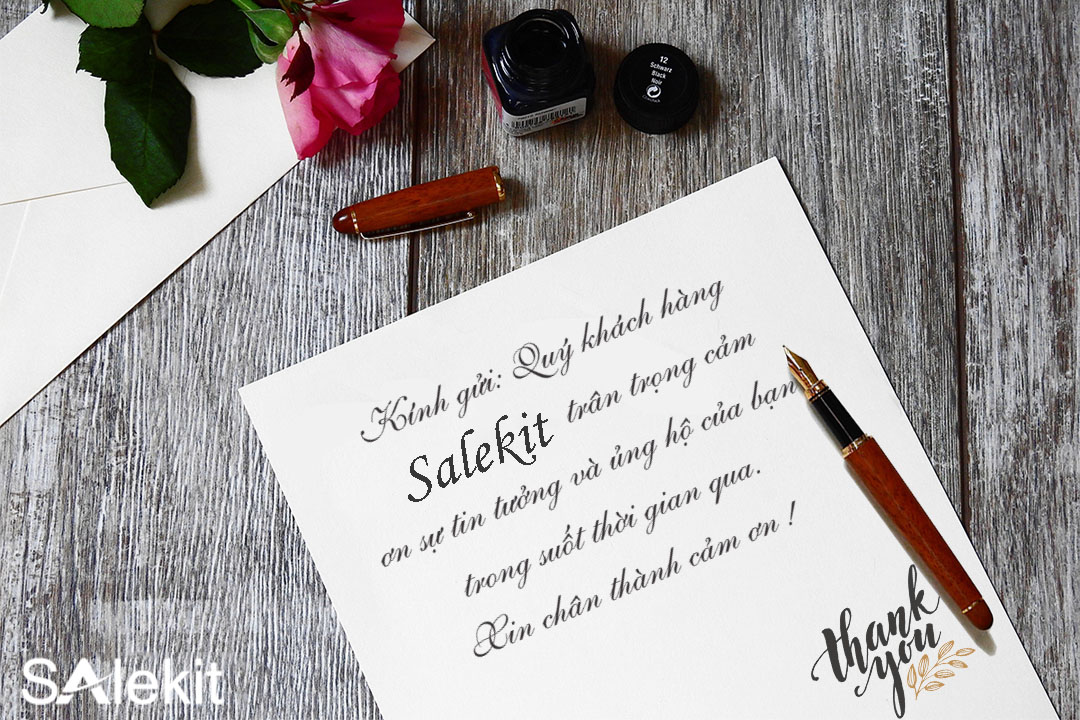 12
Schwarz
Black
Noir
Kính gửi: Quý khách hàng
Salekit trân trọng cảm
ơn sự tin tưởng và ủng hộ của bạn
trong suốt thời gian qua.
Xin chân thành cảm ơn !
thank
you
SAlekit